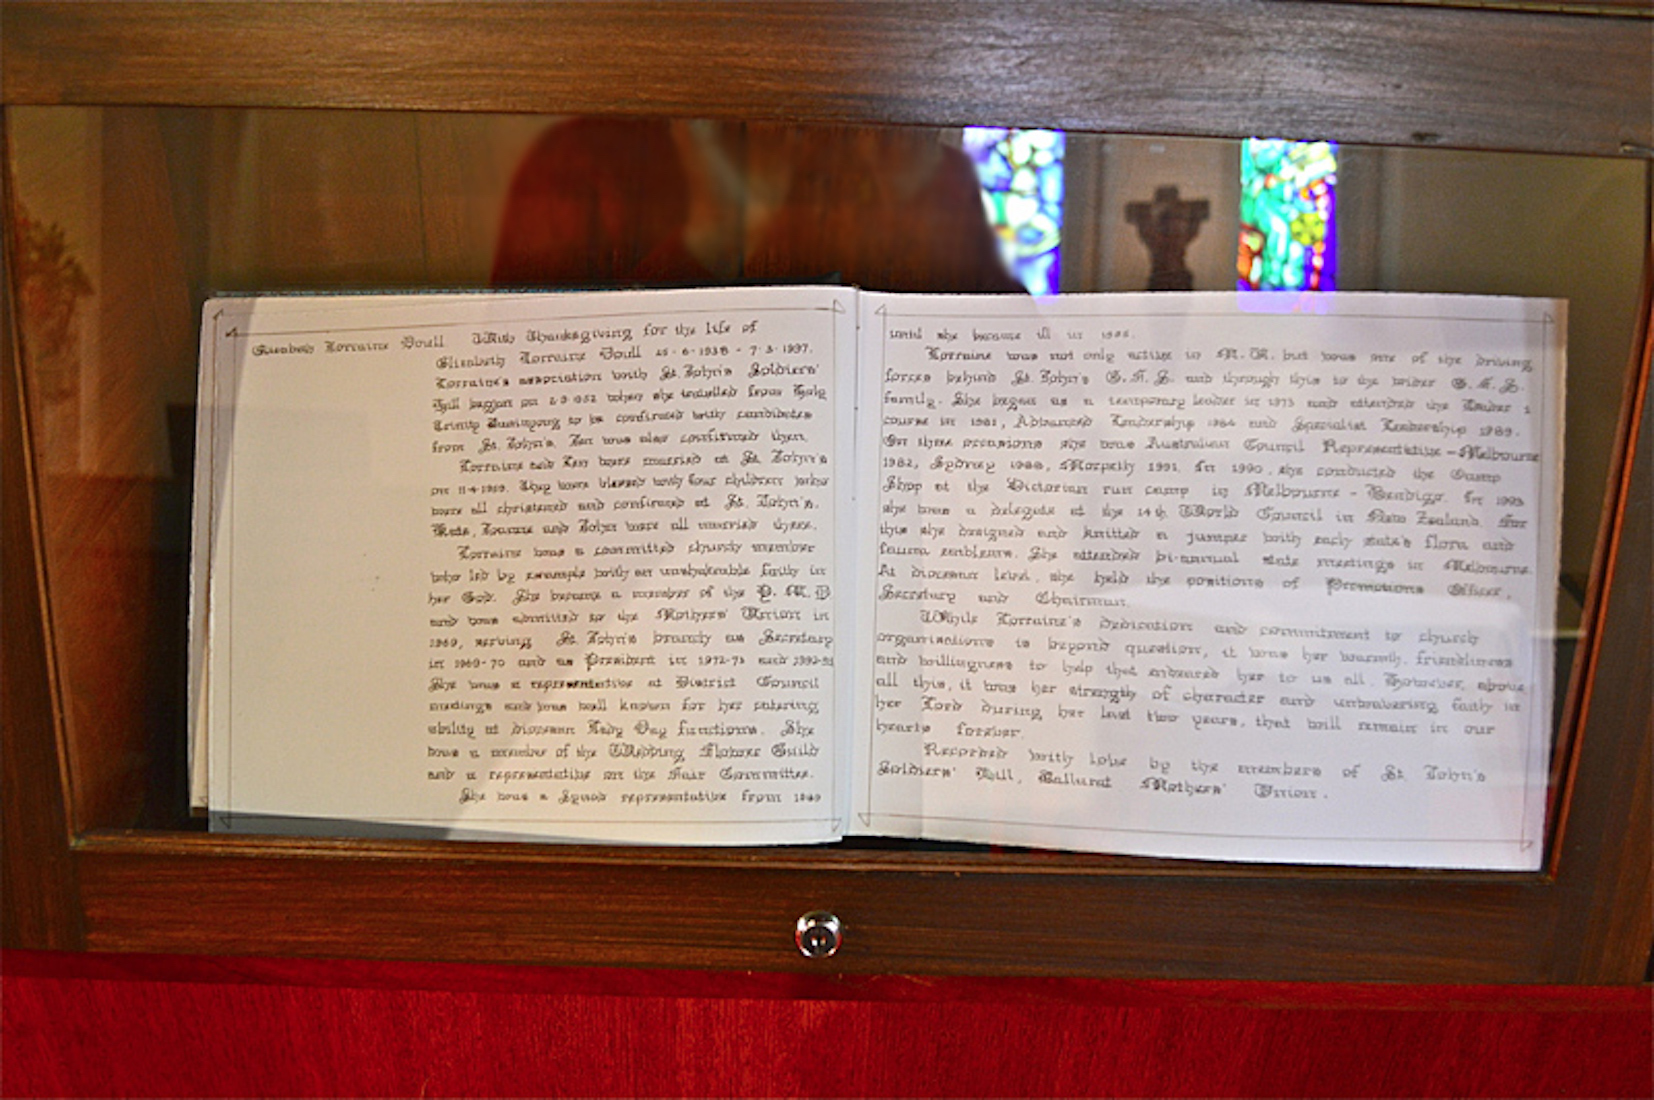 Elizabeth Lorraine Doull With Thanksgiving for the life of
Elizabeth Lorraine Doull 25 - 6 - 1938 - 7 - 3 - 1997.
Lorraine's association with St. John's Soldiers'
Hill began on when she travelled from Holy
Trinity to be confirmed with candidates
from St. John's. Len was also confirmed then.
Lorraine and Len were married at St. John's
on 11-4-1959. They were blessed with four children who
were all christened and confirmed at St. John's.
Kate, Joanne and John were all married there.
Lorraine was a committed church member
who led by example with an unshakeable faith in
her God. She became a member of the Y. M. D
and was admitted to the Mothers' Union in
1969, serving St. John's branch as Secretary
in 1969-70 and as President in 1972-73 and
She was a representative at District Council
meetings and was well known for her catering
ability at diocesan Lady Day functions. She
was a member of the Wedding Flower Guild
and a representative on the Fair Committee.
She was a Synod representative from
until she became ill in
Lorraine was not only active in M. U. but was one of the driving
forces behind St. John's G. F. S. and through this to the wider G. F. S.
family. She began as a temporary leader in 1973 and attended the Leader 1
course in 1981, Advanced Leadership 1984 and Specialist Leadership 1989.
On three occasions she was Australian Council Representative - Melbourne
1982, Sydney 1988, Morpeth 1991. In 1990, she conducted the Camp
Shop at the Victorian run camp in Melbourne - Bendigo. In 1993
she was a delegate at the 14th World Council in New Zealand. For
this she designed and knitted a jumper with each state's flora and
fauna emblems. She attended bi-annual state meetings in Melbourne.
At diocesan level, she held the positions of Promotions Officer,
Secretary and Chairman.
While Lorraine's dedication and commitment to church
organisations is beyond question, it was her warmth, friendliness
and willingness to help that endeared her to us all. However, above
all this, it was her strength of character and unwavering faith in
her Lord during her last two years, that will remain in our
hearts forever.
Recorded with love by the members of St. John's
Soldiers' Hill, Ballarat Mothers' Union.